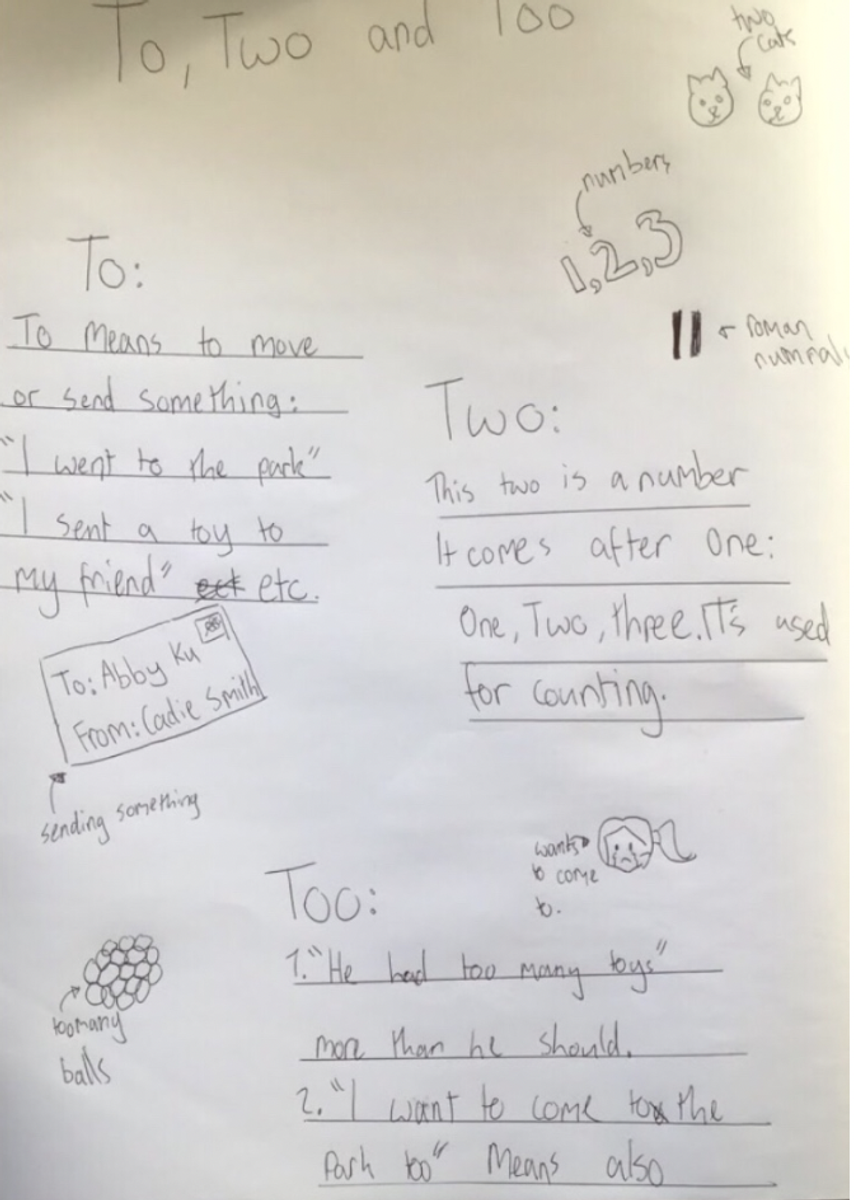 To, Two and Too
two
cats
numbers
1,2,3
To:
To means to move
or send something:
"I went to the park"
"I sent a toy to
my friend" ect etc.
To: Abby Ku
From: Cadie Smith
sending something
II ← roman
numral
Two:
This two is a number
It comes after One:
One, Two, three. IT's used
for counting.
wants
to come
to.
Too:
1. "He had too many toys"
more than he should.
2. "I want to come to the
Park too" Means also
too many
balls